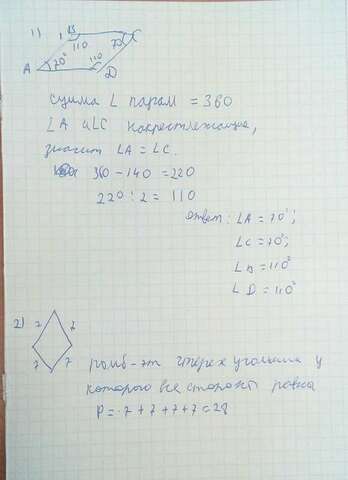 1) B C
110 70
A 70° 110 D
сумма ∠ парам = 360
∠A и ∠C накрестлежащие,
значит ∠A = ∠C.
360 - 140 = 220
220 : 2 = 110
ответ: ∠A = 70°;
∠C = 70°;
∠B = 110°
∠D = 110°
2) 7 7
7 7
ромб - эт четерех угольник у
которого все стороны равна
P = 7 + 7 + 7 + 7 = 28